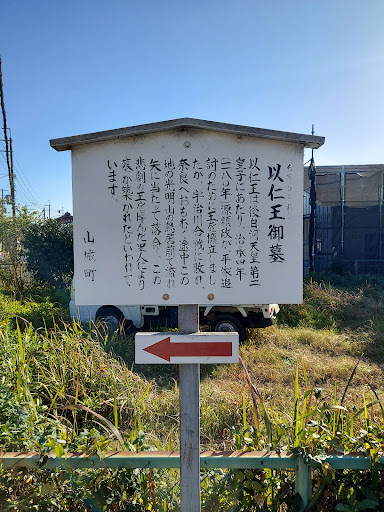 以仁王御墓
以仁王は後白河天皇第二
皇子にあたり、治承四年
(一一八〇年)源頼政が平家追
討のために王を擁立しまし
たが、宇治川合戦に敗れ、
奈良へおもむく途中この
地の光明山の鳥居前で流れ
矢に当たって落命、この
悲劇の王を悼んだ里人により
墓が築かれたといわれて
います。
山城町